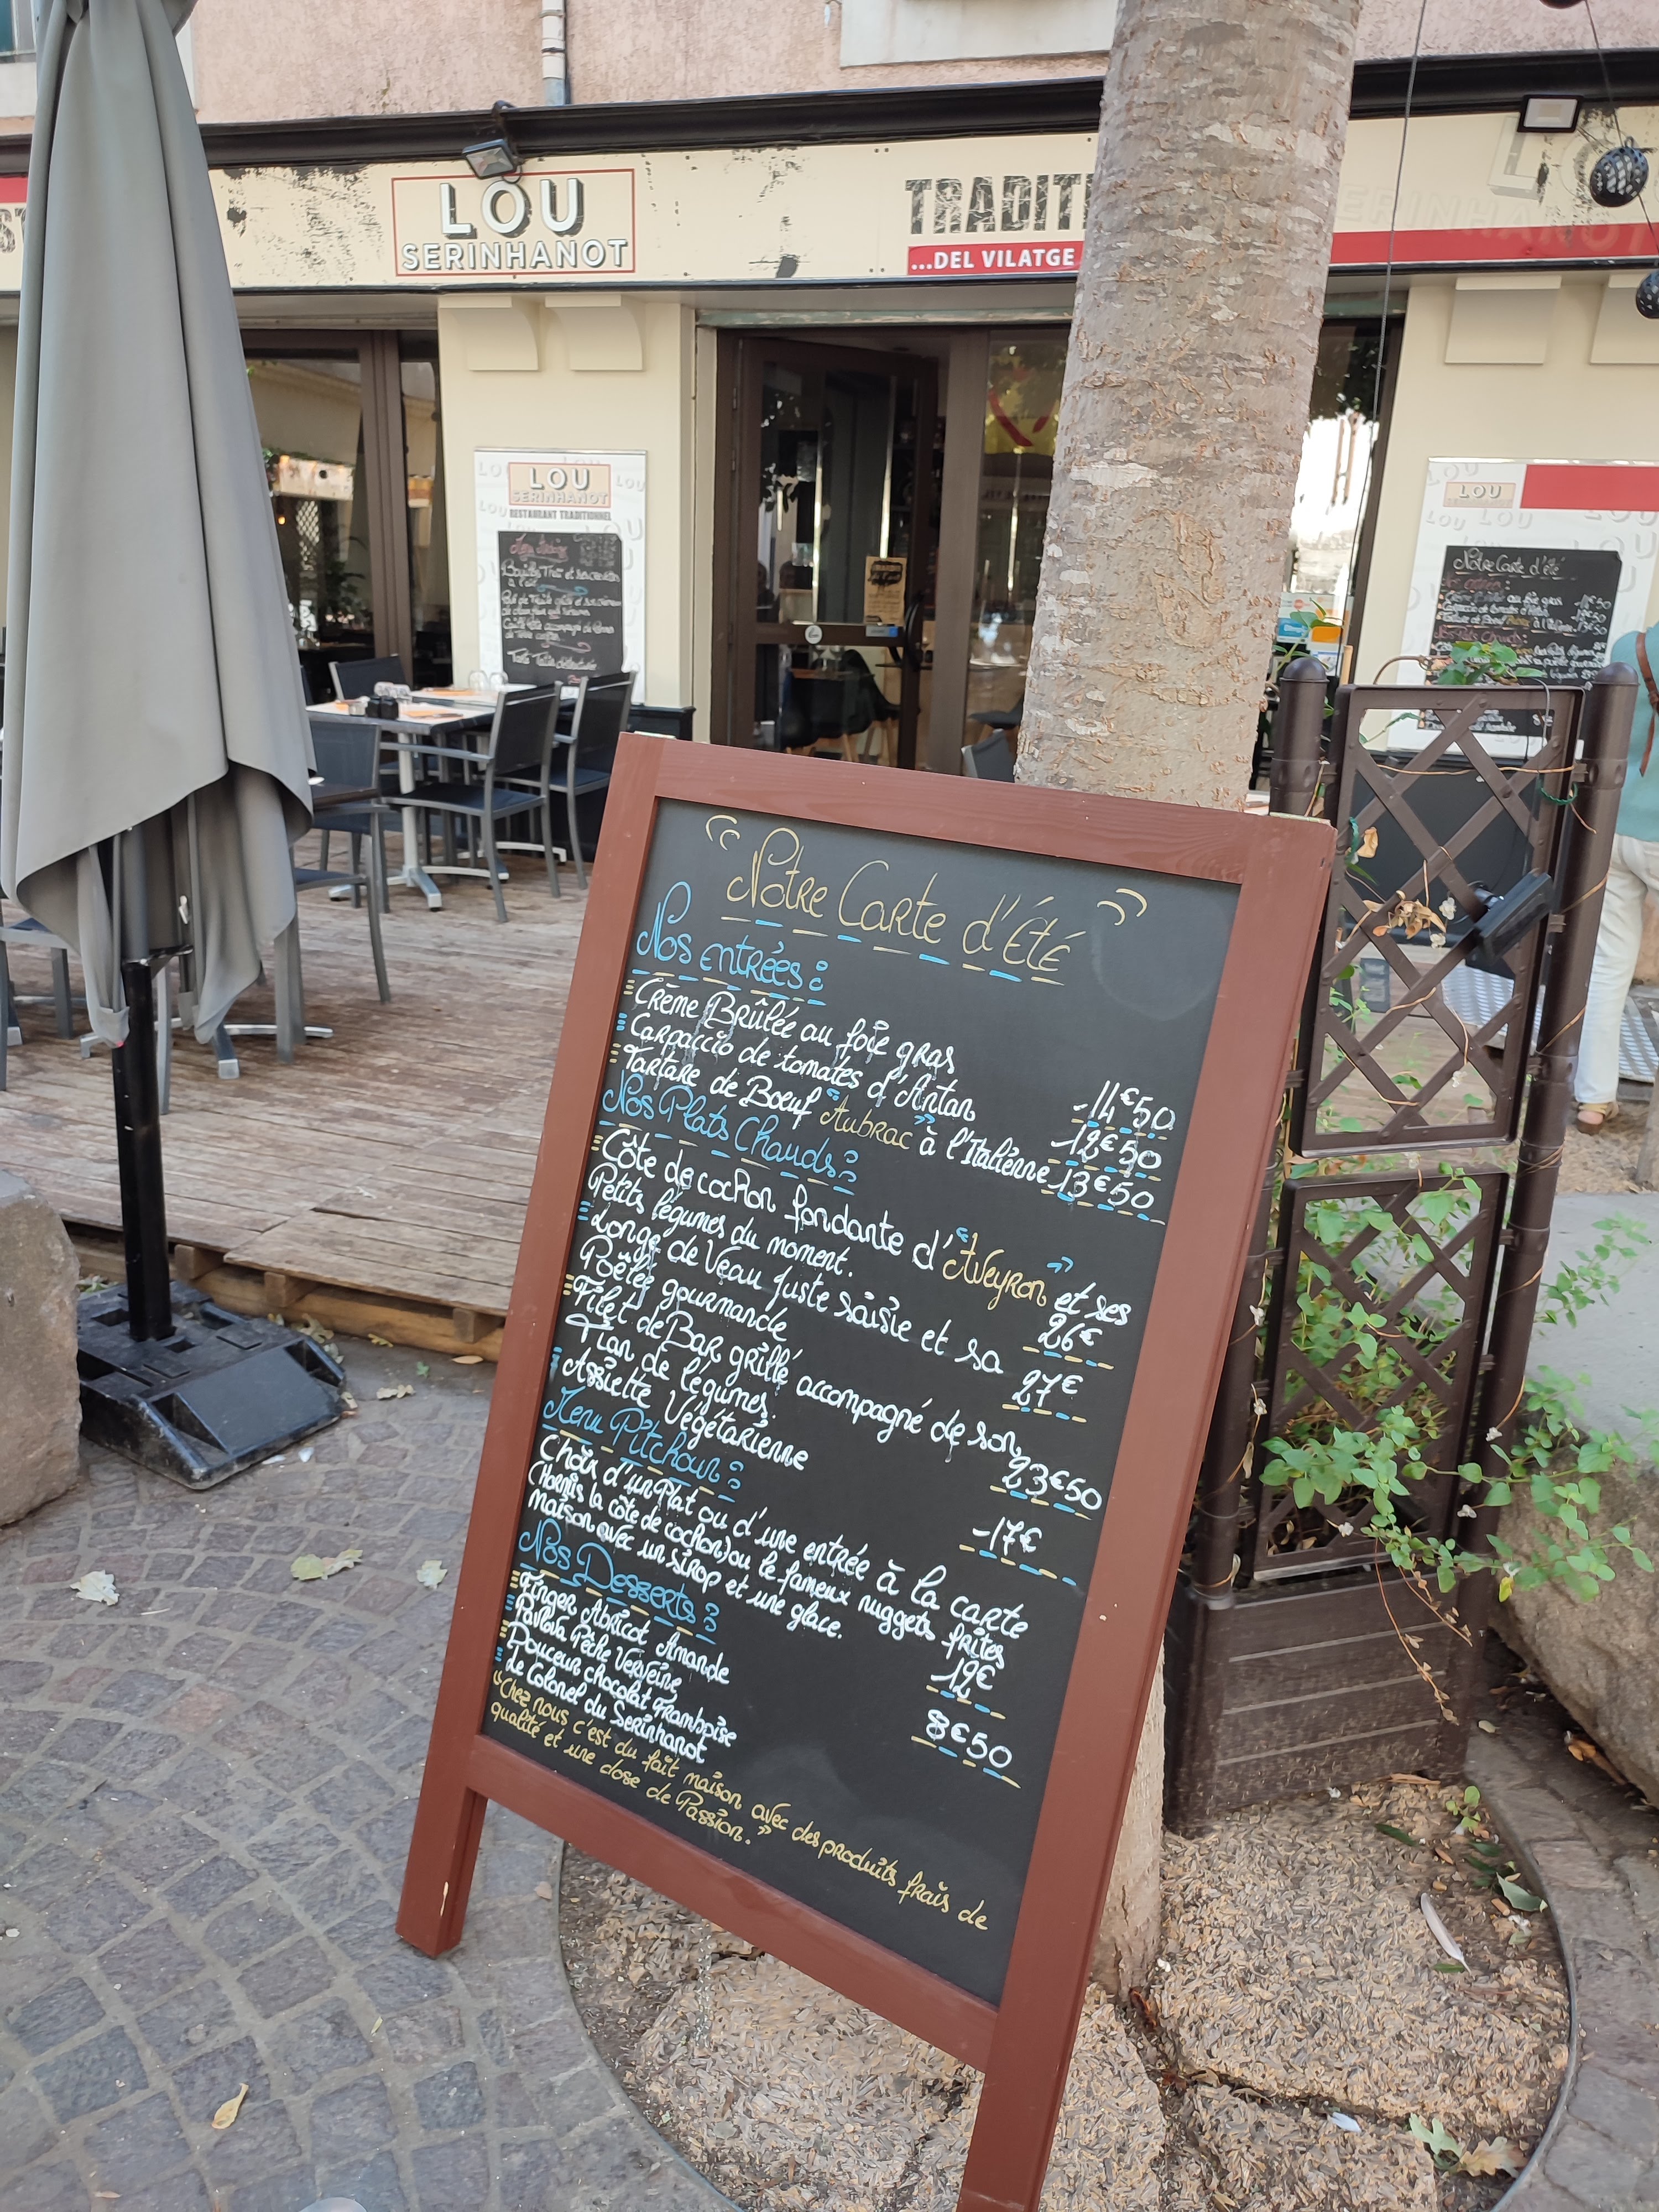 LOU
SERINHANOT
TRADITI
...DEL VILATGE
LOU
SERINHANOT
RESTAURANT TRADITIONNEL
LOU
Notre Carte d'été
" Notre Carte d'Été "
Nos entrées :
Crème Brûlée au foie gras -14€50
Carpaccio de tomates d'Antan -12€50
Tartare de Boeuf "Aubrac" à l'Italienne 13€50
Nos Plats Chauds :
Côte de cochon fondante d'"Aveyron" et ses
Petits légumes du moment. 26€
Longe de Veau juste saisie et sa
Poêlée gourmande 27€
Filet de Bar grillé accompagné de son
Tian de légumes. 23€50
Assiette Végétarienne -17€
Menu Pitchoun :
Choix d'un Plat ou d'une entrée à la carte
(Hormis la côte de cochon) ou le fameux nuggets frites
maison avec un sirop et une glace. 12€
Nos Desserts : 8€50
Finger Abricot Amande
Pavlova Pêche Verveine
Douceur chocolat Framboise
Le Colonel du Serinhanot
"Chez nous c'est du fait maison avec des produits frais de
qualité et une dose de Passion."